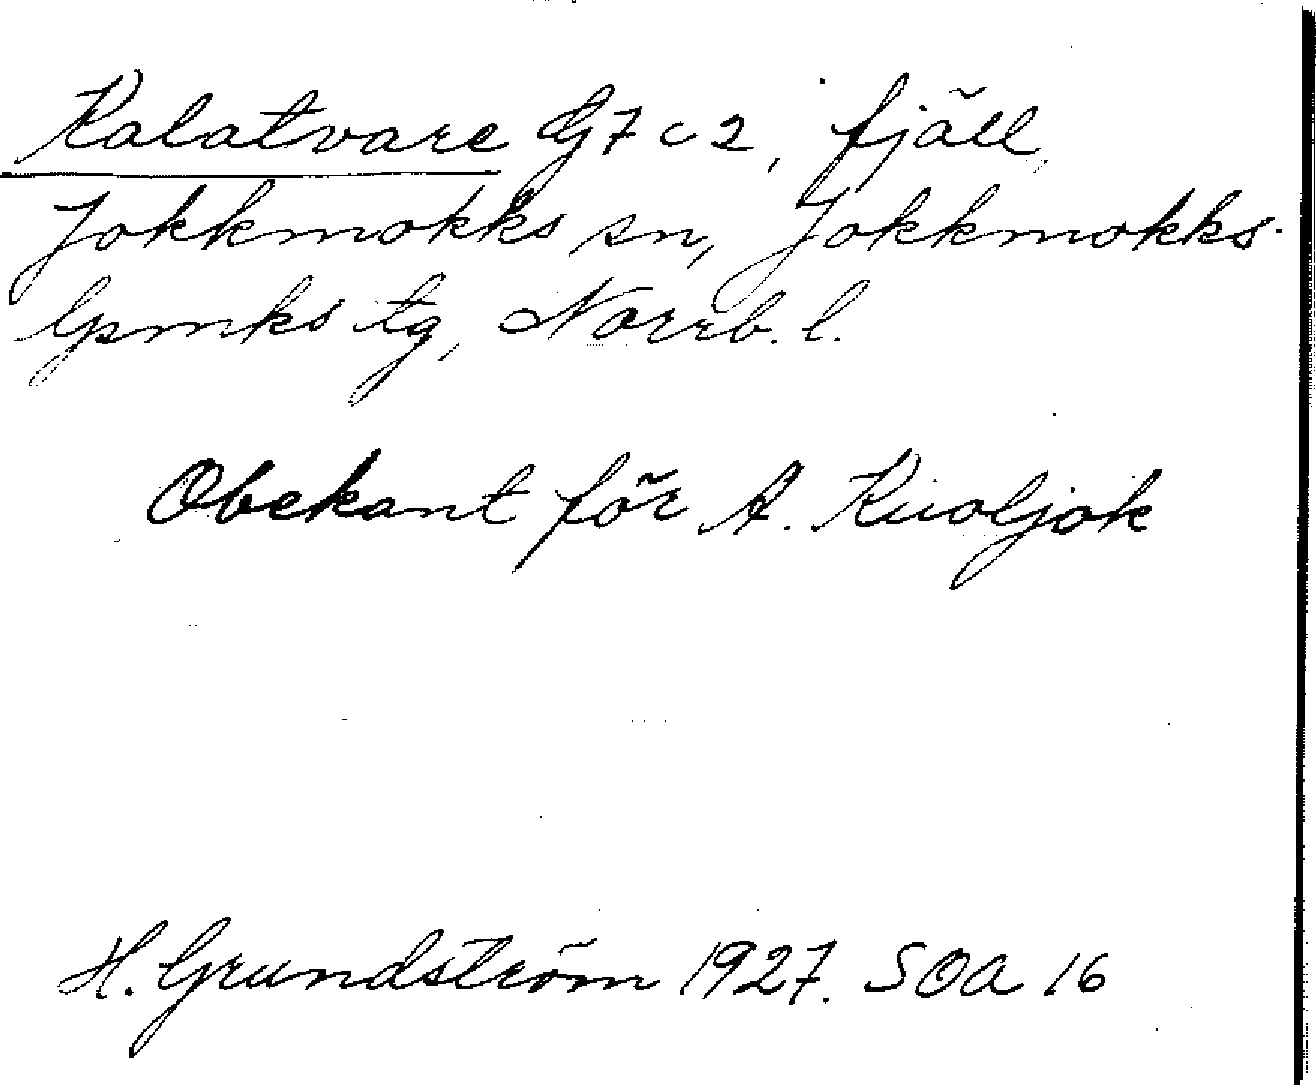 Kalatvare Dj7c2, fjäll,
Jokkmokks sn, Jokkmokks-
lpmks tg, Norrb. l.
Obekant för A. Kuoljok
H. Grundström 1927. SOA 16